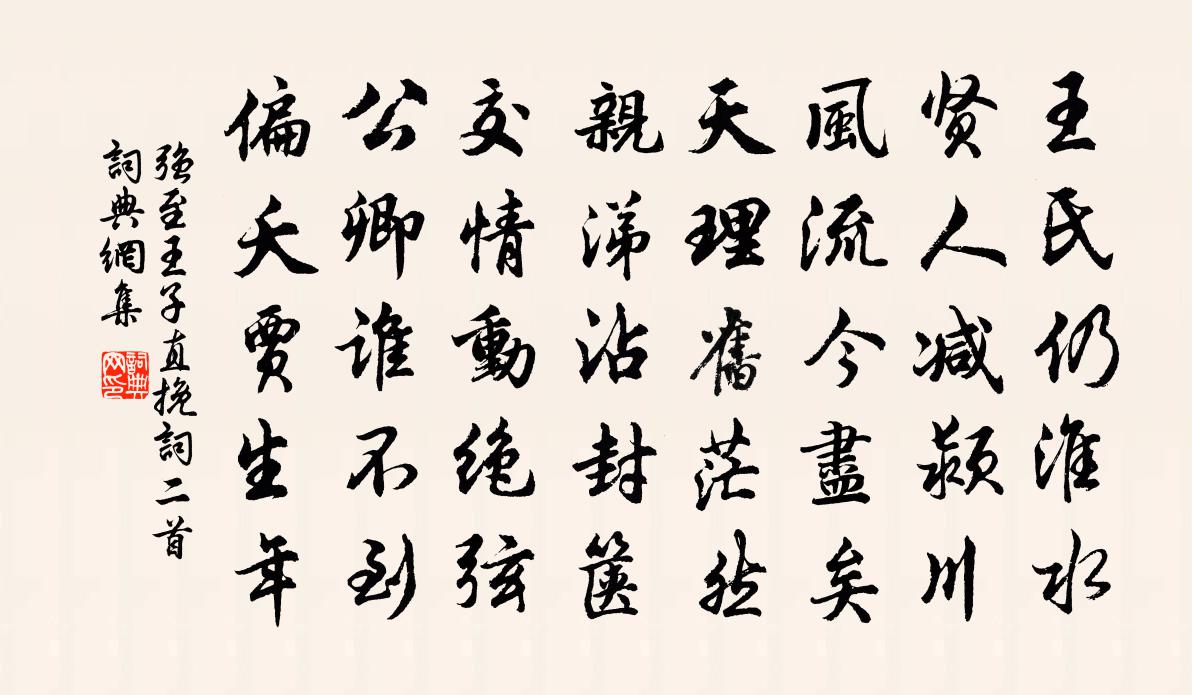 王氏仍淮水
贤人减颍川
風流今盡矣
天理舊茫然
親涕沾封篋
交情動绝弦
公卿谁不到
偏夭賈生年
强至王子直挽詞二首
詞典網集
詞典網印